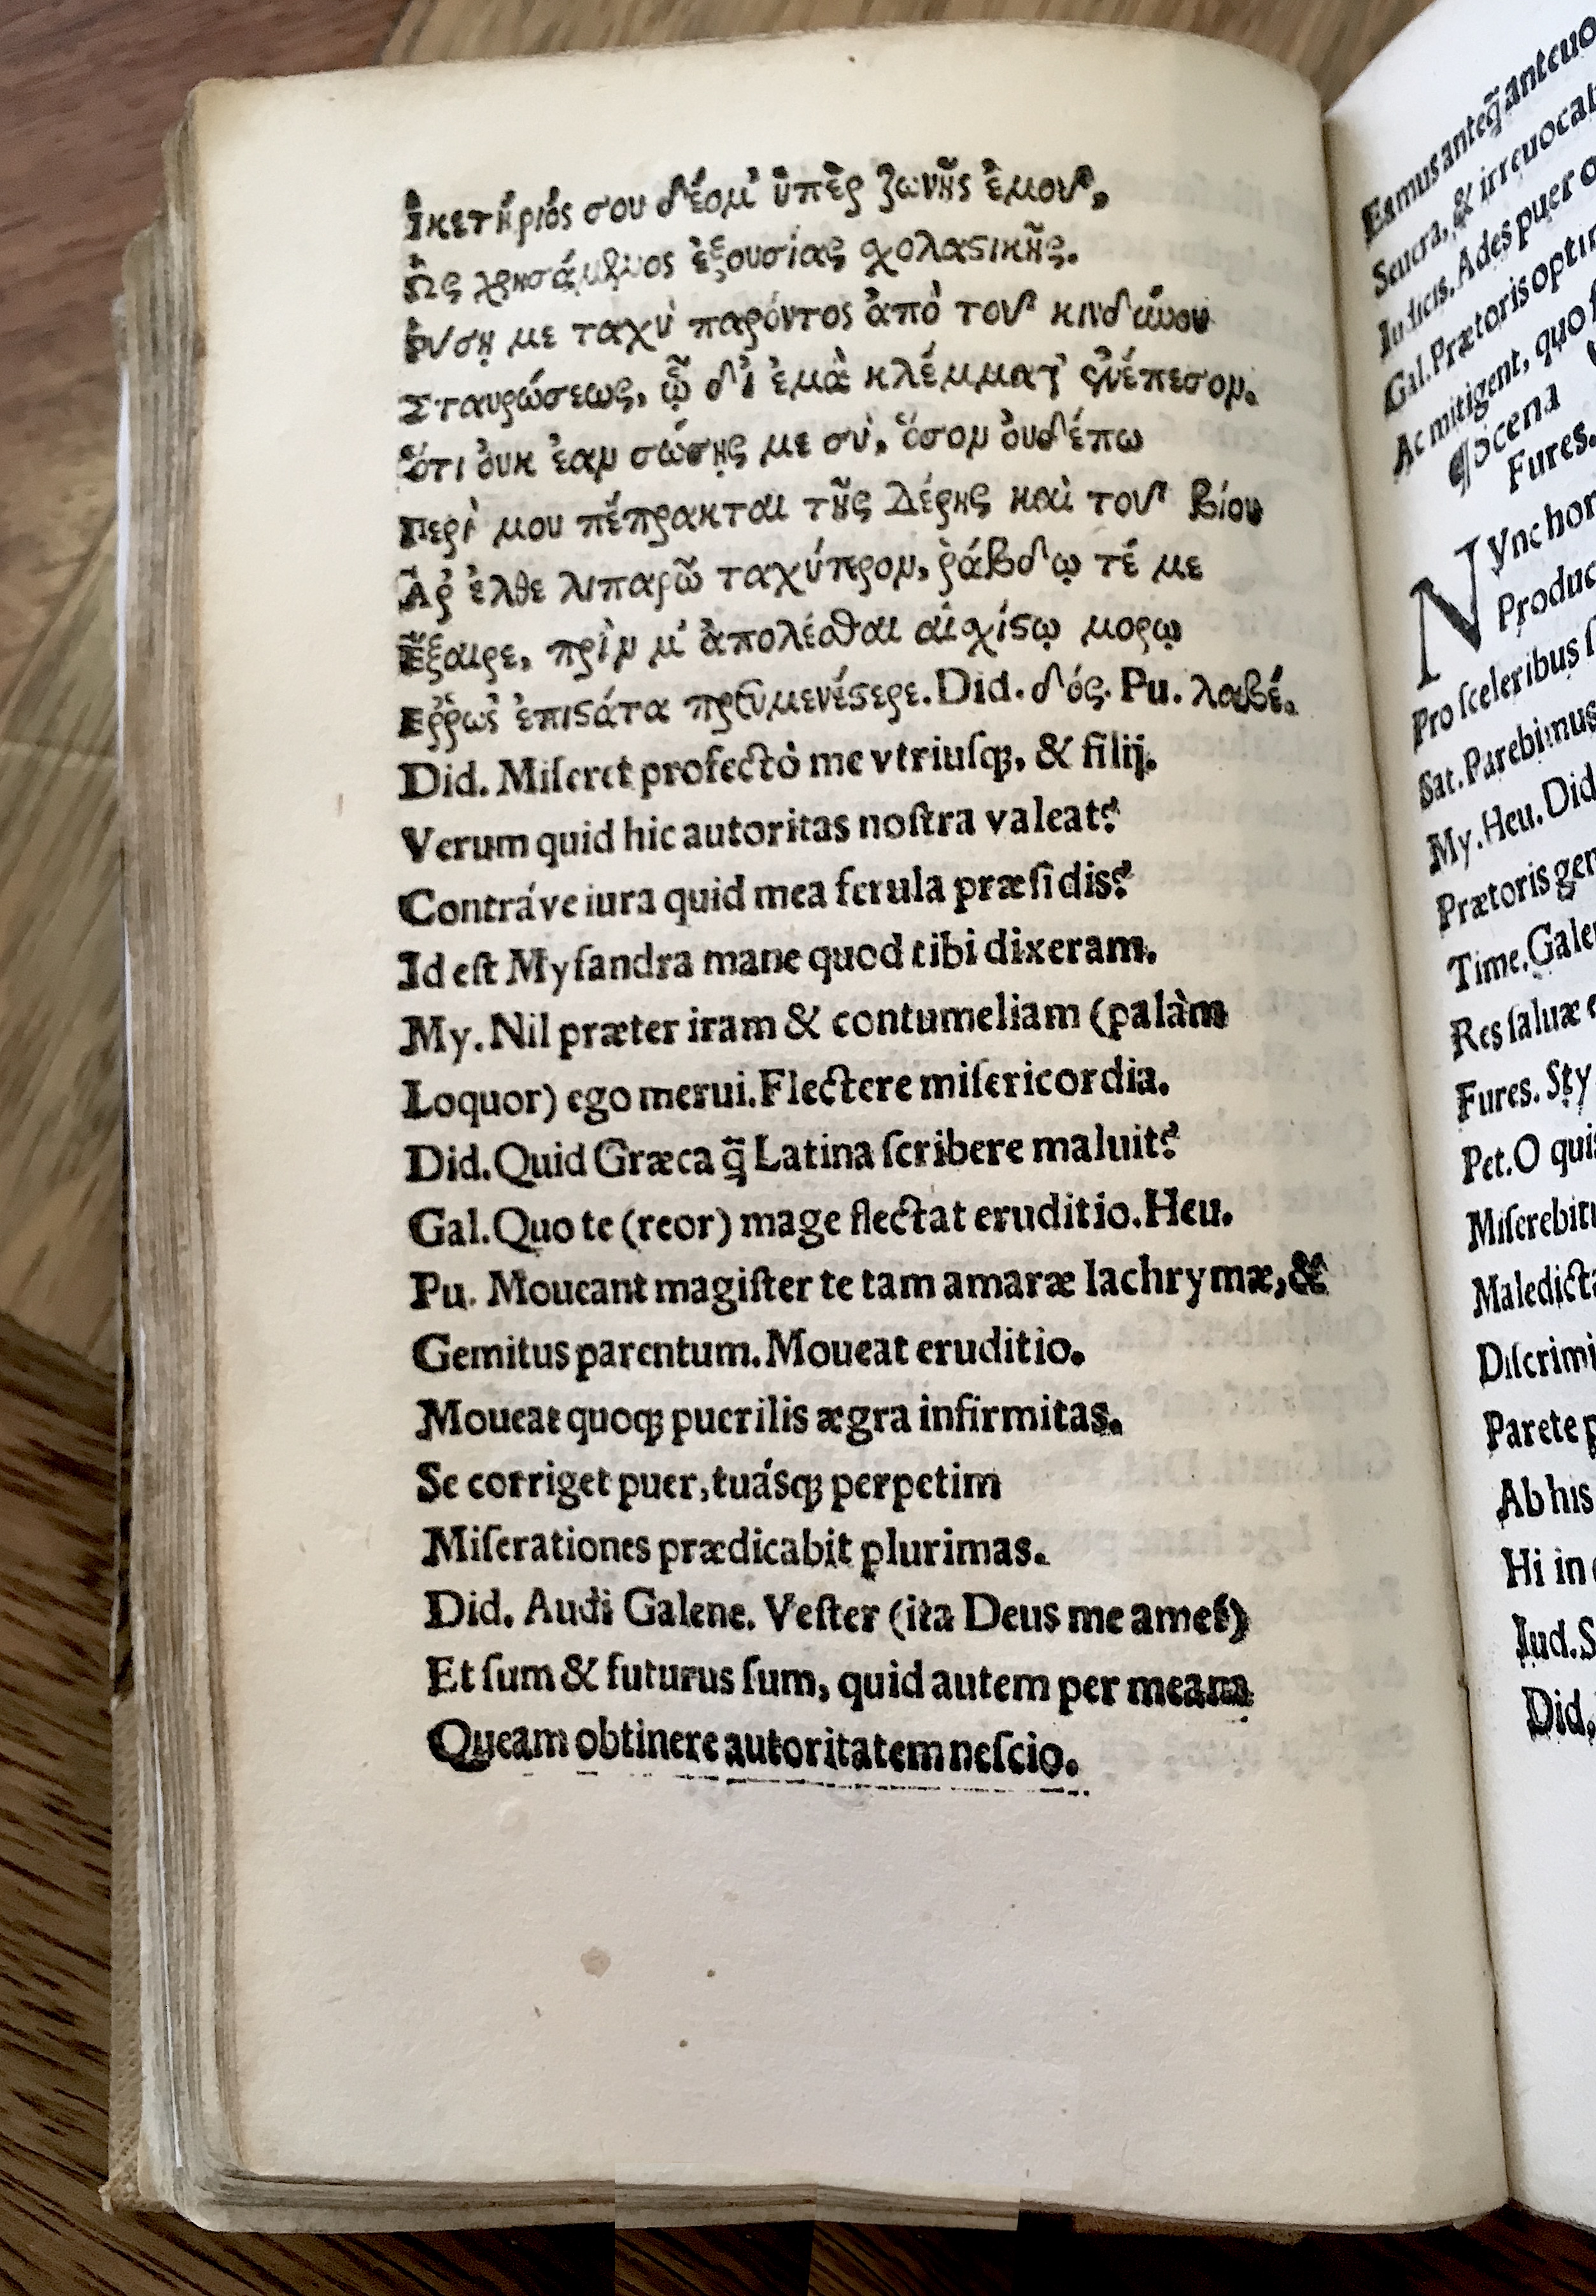 Ἱκετήριός σου δέομ' ὑπὲρ ζωνῆς ἐμοῦ,
Ὡς χρησάμενος ἐξουσίας χολαστικῆς.
Ῥύσῃ με ταχὺ παρόντος ἀπὸ τοῦ κινδύνου
Σταυρώσεως, ᾧ δι' ἐμὰ κλέμματ' ἐνέπεσον.
Ὅτι ὀυκ ἐὰν σώσῃς με σὺ, ὅσον ὀυδέπω
Περὶ μου πέπρακται τῆς δέρης καὶ τοῦ βίου
Ἂρ' ἐλθε λιπαρῶ ταχύτερον, ῥάβδῳ τέ με
Ἔξαιρε, πρὶν μ' ἀπολέσθαι αἰχίστῳ μορῳ
Ερῤωσ' ἐπιστάτα πρευμενέστερε. Did. δός. Pu. λαβέ.
Did. Miſeret profectò me vtriuſqꝫ, & filij.
Verum quid hic autoritas noſtra valeat?
Contráve iura quid mea ferula præſidis?
Id eſt Myſandra mane quod tibi dixeram.
My. Nil præter iram & contumeliam (palàm
Loquor) ego merui. Flectere miſericordia.
Did. Quid Græca q̃ Latina ſcribere maluit?
Gal. Quo te (reor) mage flectat eruditio. Heu.
Pu. Moueant magiſter te tam amaræ lachrymæ, &
Gemitus parentum. Moueat eruditio.
Moueat quoqꝫ puerilis ægra infirmitas.
Se corriget puer, tuásqꝫ perpetim
Miſerationes prædicabit plurimas.
Did. Audi Galene. Veſter (ita Deus me amet)
Et ſum & futurus ſum, quid autem per meam
Queam obtinere autoritatem neſcio.
Eamus anteq̃ anteuo
Seuera, & irreuocab
Iudicis. Ades puer o
Gal. Prætoris optim
Ac mitigent, quo
¶Scena
Fures.
NVnc hor
Produc
Pro ſceleribus ſ
Sat. Parebimus
My. Heu. Did
Prætoris gen
Time. Gale
Res ſaluæ e
Fures. Sty
Pet. O quis
Miſerebitu
Maledicta
Diſcrimi
Parete p
Ab his
Hi in
Iud. S
Did.